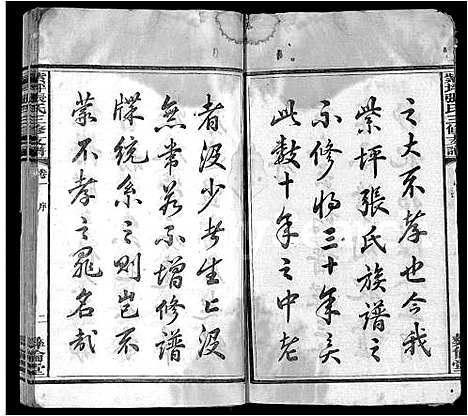 之大不孝也今我
紫坪張氏族譜之
不修將三十年矣
此數十年之中老
者沒少者生亡沒
無常若不增修譜
牒統系之則豈不
蒙不孝之罪名哉
紫坪張氏三修支譜
卷一 序
二
彝倫堂